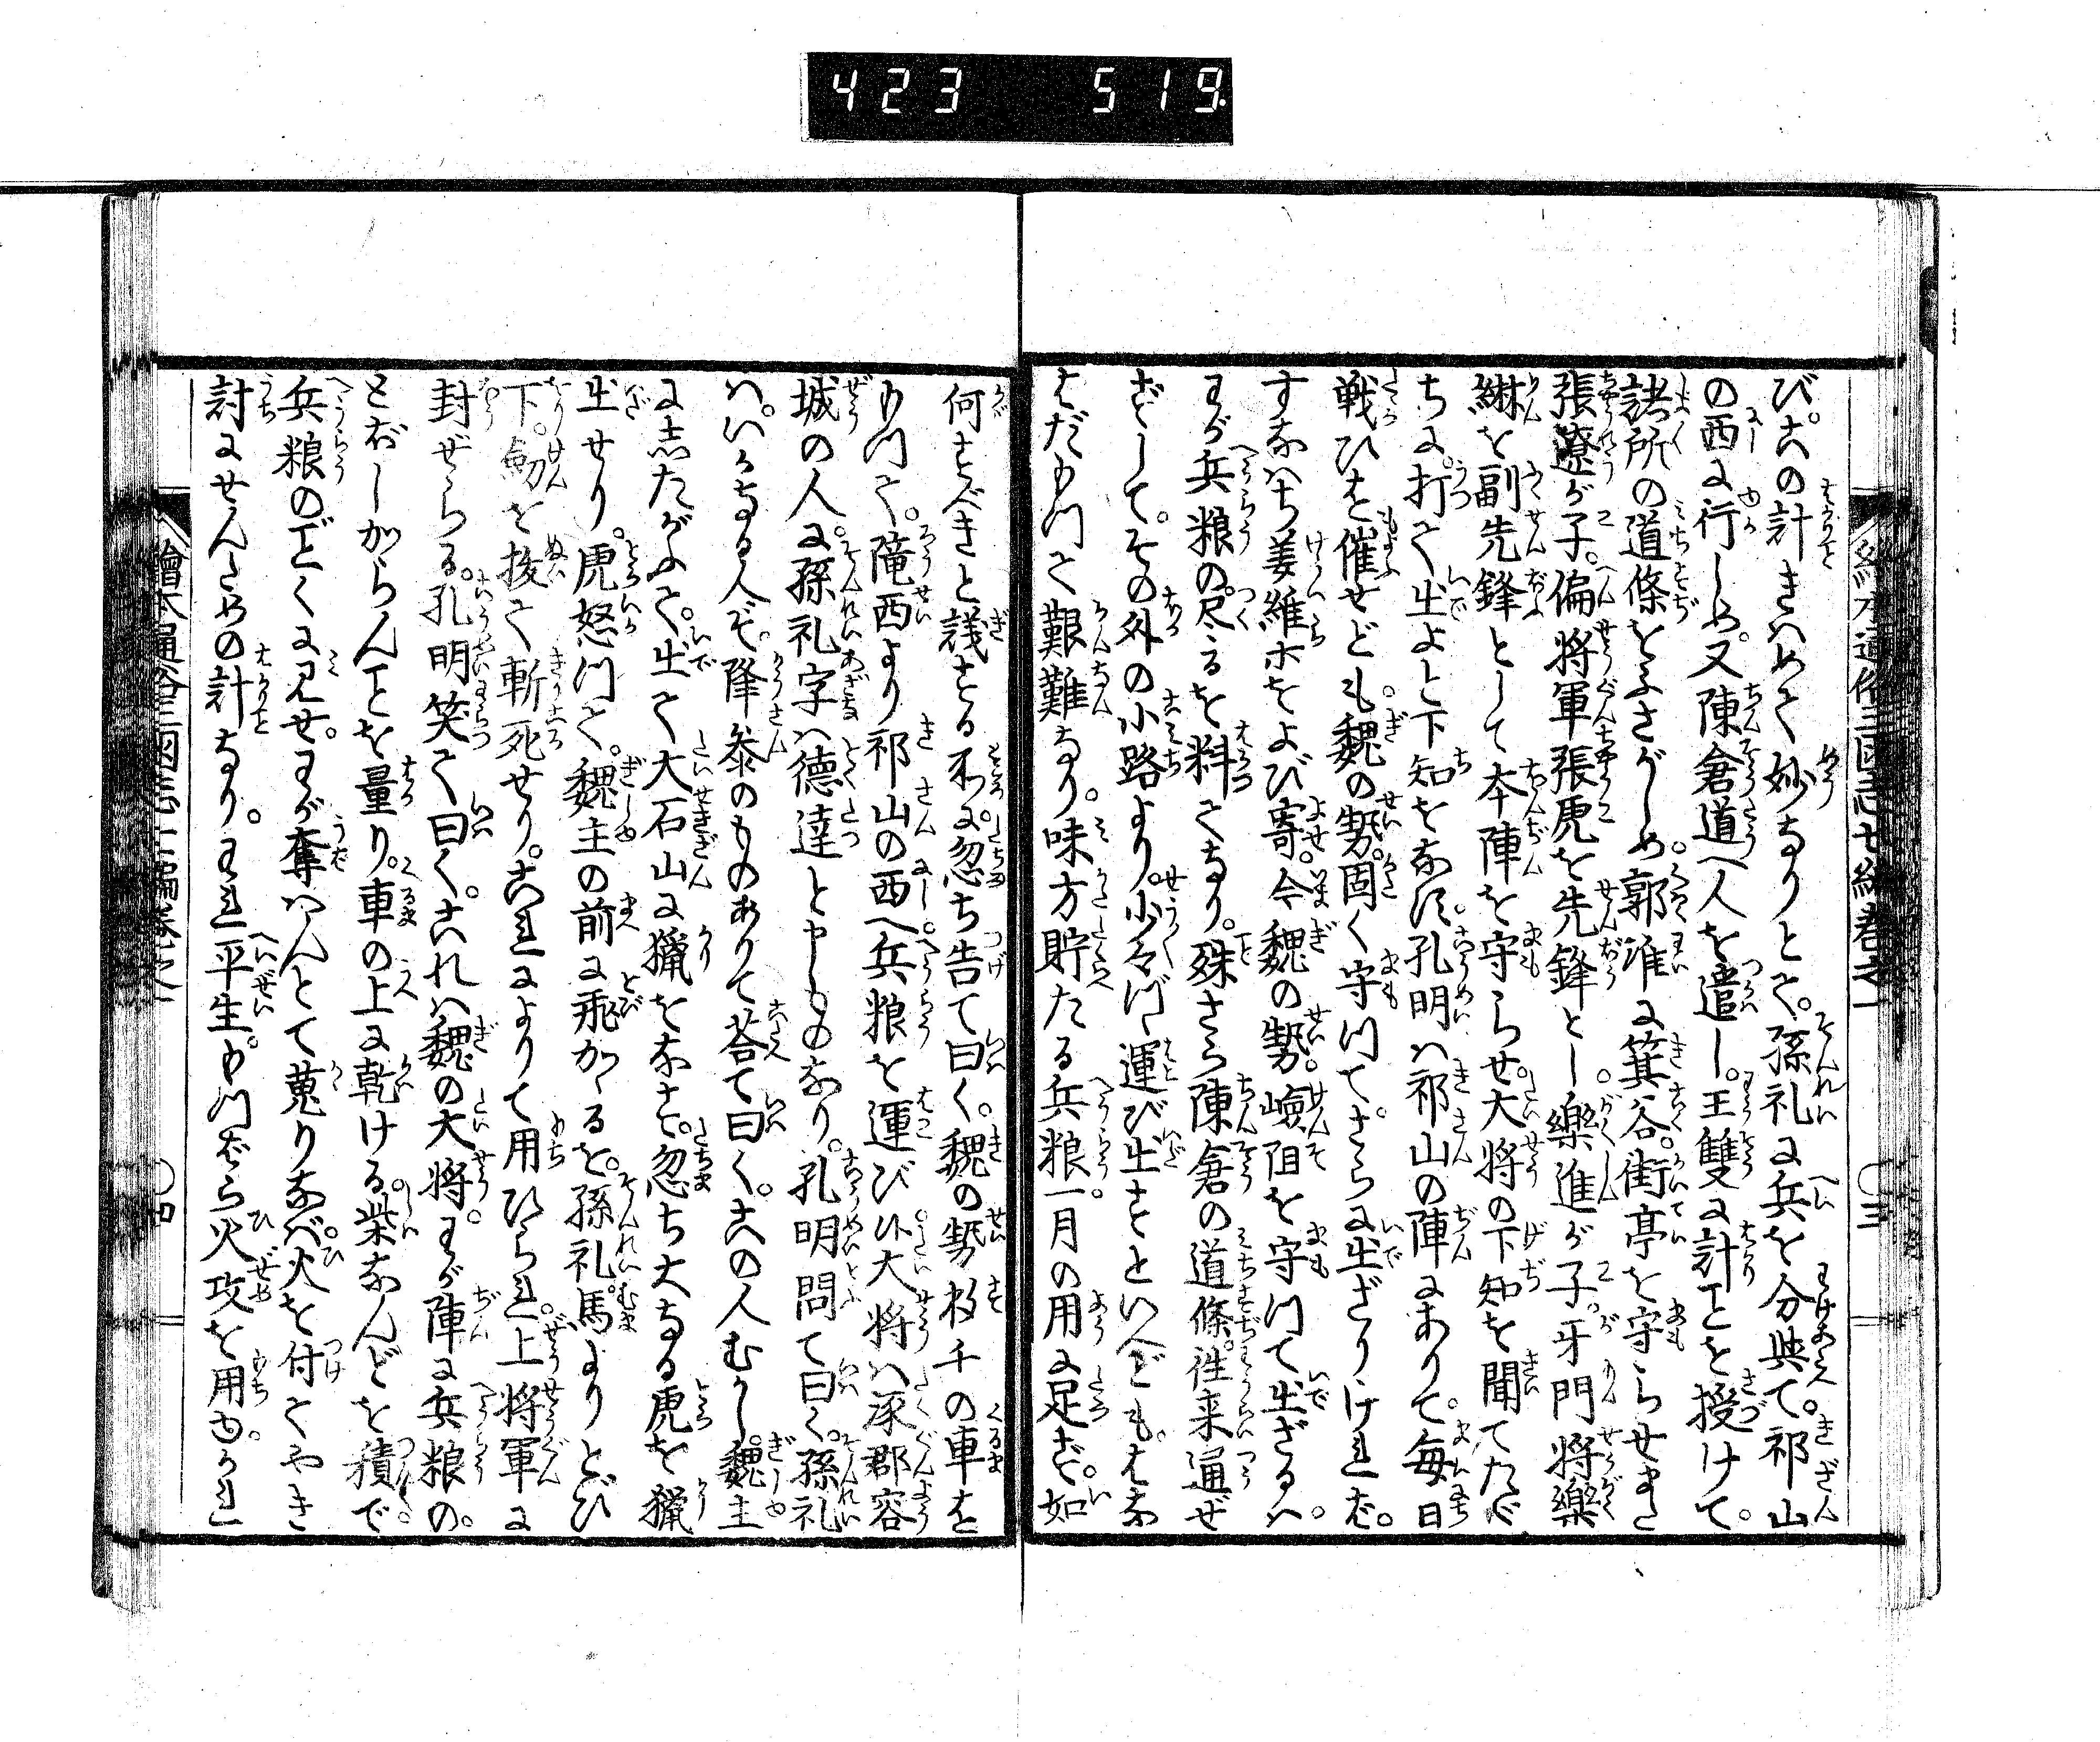 423 519
び。此の計きはめて妙なりとて。孫礼に兵を分与て。祁山
の西に行しめ。又陳倉道へ人を遣し。王雙に計ことを授けて。
諸所の道條をふさがしめ。郭淮に箕谷。街亭を守らせまた
張遼が子。偏将軍張虎を先鋒とし。樂進が子。牙門将樂
綝を副先鋒として本陣を守らせ。大将の下知を聞てたゞ
ちに打て出よと下知をなす。孔明は祁山の陣にありて。毎日
戦ひを催せども。魏の勢。固く守つて。さらに出ざりければ。
すなはち姜維等をよび寄。今魏の勢。嶮阻を守つて出ざるは。
わが兵粮の。尽るを料てなり。殊さら陳倉の道條。徃来通ぜ
ずして。その外の小路より。少々づゝ運び出すといへども。はな
はだもつて艱難なり。味方貯たる兵粮。一月の用に足ず。如
何すべきと議する所に。忽ち告て曰く。魏の勢数千の車を
もつて。隴西より祁山の西へ兵粮を運び候。大将は涿郡容
城の人。孫礼字は徳達と申ものなり。孔明問て曰く。孫礼
は。いかなる人ぞ。降参のものありて荅て曰く。此の人むかし。魏主
にしたがふて。出て大石山に獵をなす。忽ち大なる虎を獵
出せり。虎怒つて。魏主の前に飛かゝるを。孫礼。馬よりとび
下。剱を抜て斬死せり。これによりて用ひられ。上将軍に
封ぜらる。孔明笑て曰く。これは魏の大将。わが陣に兵粮の。
とぼしからんことを量り。車の上に乾ける。柴なんどを積で
兵粮のごとくに見せ。わが奪はんとて蒐りなば。火を付てやき
討にせんための計なり。われ平生。もつぱら火攻を用ゆ。かれ
繪本通俗三國志七編巻之一
〇三
繪本通俗三國志七編巻之一
〇四